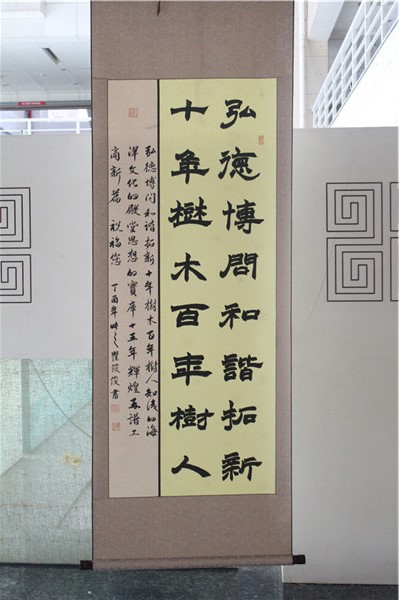 弘德博問和諧拓新
十年樹木百年樹人
弘德博问和谐拓新十年樹木百年樹人知识的海
洋文化的殿堂思想的寶庫十五年輝煌再谱工
商新篇 祝福您
丁酉年 書